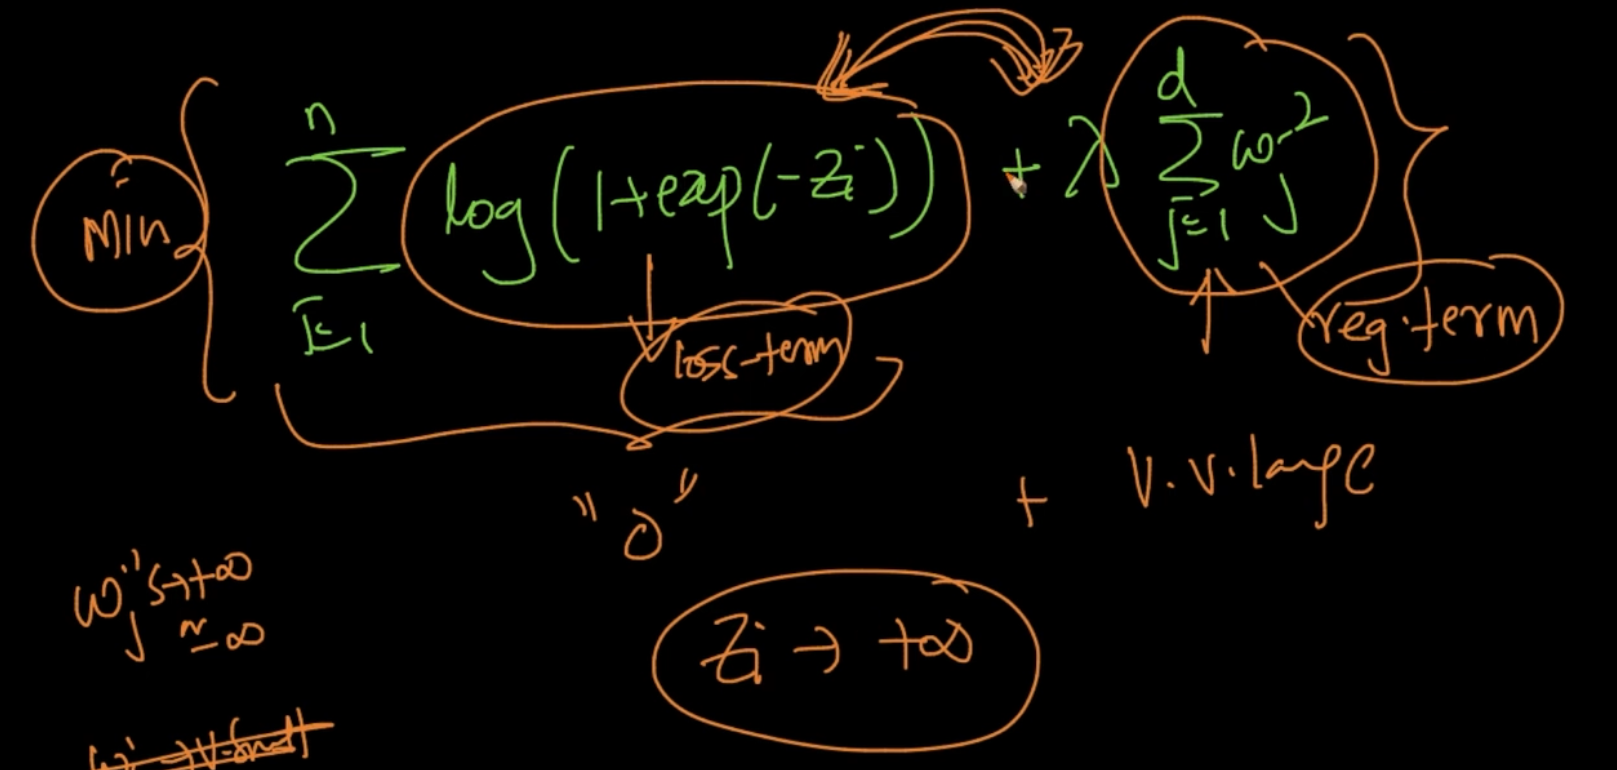 min { n Σ i=1 log(1+exp(-Zi)) + λ d Σ j=1 wj² }
loss-term
reg. term
"0" + V.V.large
wj's → +∞
≃ ∞
Zi → +∞